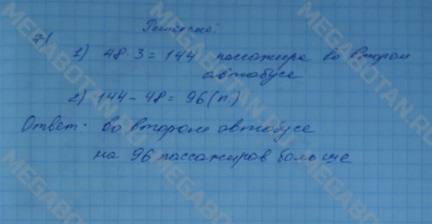 Решение:
а)
1) 48·3=144 пассажира во втором
автобусе
2) 144-48=96(п.)
Ответ: во втором автобусе
на 96 пассажиров больше
MEGABOTAN.RU